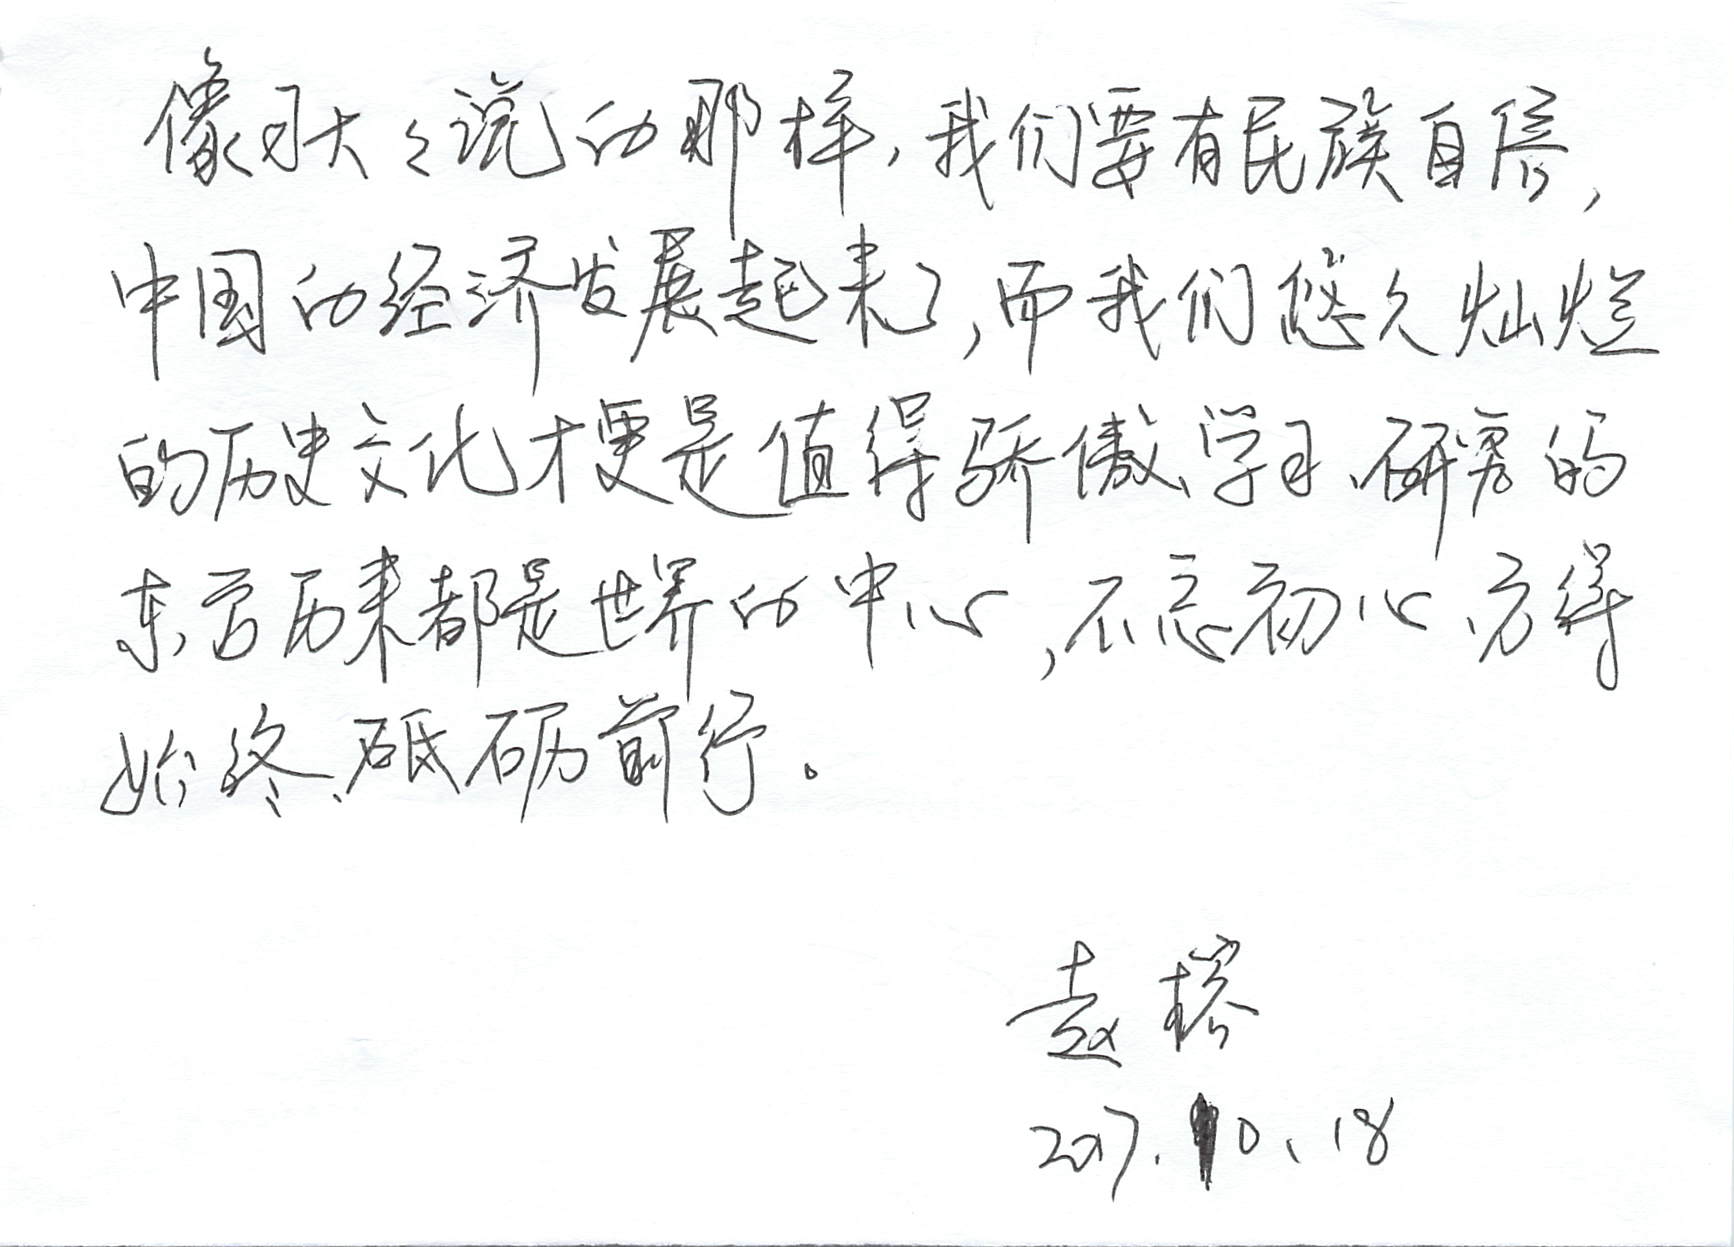 像习大大说的那样，我们要有民族自信，
中国的经济发展起来了，而我们悠久灿烂
的历史文化才更是值得骄傲、学习、研究的
东方历来都是世界的中心，不忘初心、方得
始终、砥砺前行。
赵榕
2017.10.18